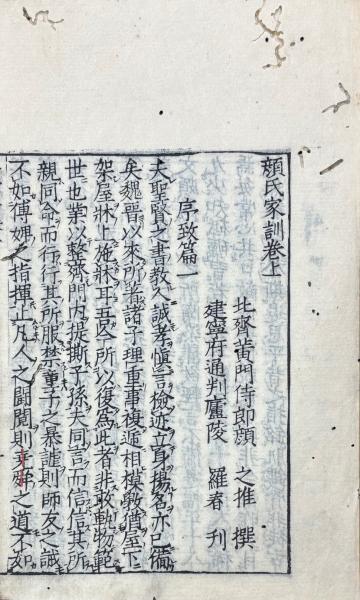 顏氏家訓卷上
北齊黃門侍郎顏之推 撰
建寧府通判廬陵 羅春 刊
序致篇一
夫聖賢之書教人誠孝愼言檢迹立身揚名亦已備
矣魏晉以來所著諸子理重事復遞相模斆猶屋下
架屋牀上施牀耳吾今所以復爲此者非敢軌物範
世也業以整齊門內提撕子孫夫同言而信信其所
親同命而行行其所服禁童子之暴謔則師友之誡
不如傅婢之指揮止凡人之鬪鬩則堯舜之道不如